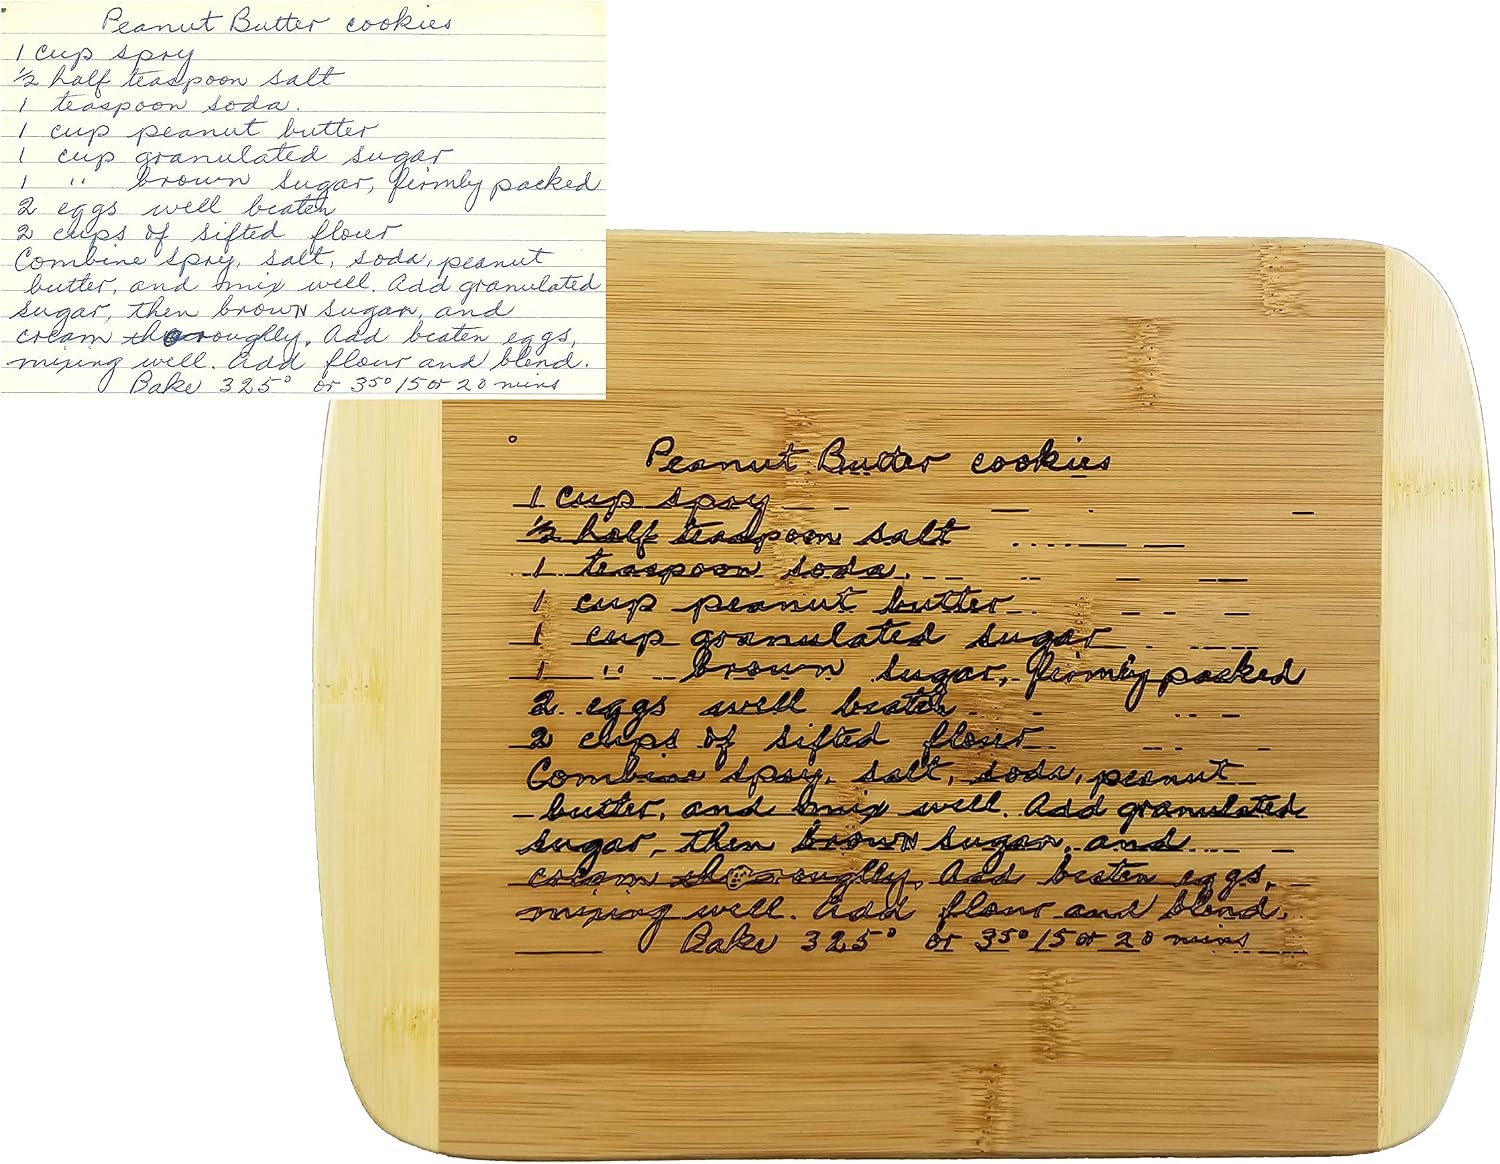 Peanut Butter cookies
1 cup spry
½ half teaspoon salt
1 teaspoon soda.
1 cup peanut butter
1 cup granulated sugar
1 " brown sugar, firmly packed
2 eggs well beaten
2 cups of sifted flour
Combine spry, salt, soda, peanut
butter, and mix well. Add granulated
sugar, then brown sugar, and
cream thoroughly. Add beaten eggs,
mixing well. Add flour and blend.
Bake 325° or 350 15 or 20 mins
Peanut Butter cookies
1 cup spry
½ half teaspoon salt
1 teaspoon soda.
1 cup peanut butter
1 cup granulated sugar
1 " brown sugar, firmly packed
2 eggs well beaten
2 cups of sifted flour
Combine spry, salt, soda, peanut
butter, and mix well. Add granulated
sugar, then brown sugar, and
cream thoroughly. Add beaten eggs,
mixing well. Add flour and blend.
Bake 325° or 350 15 or 20 mins